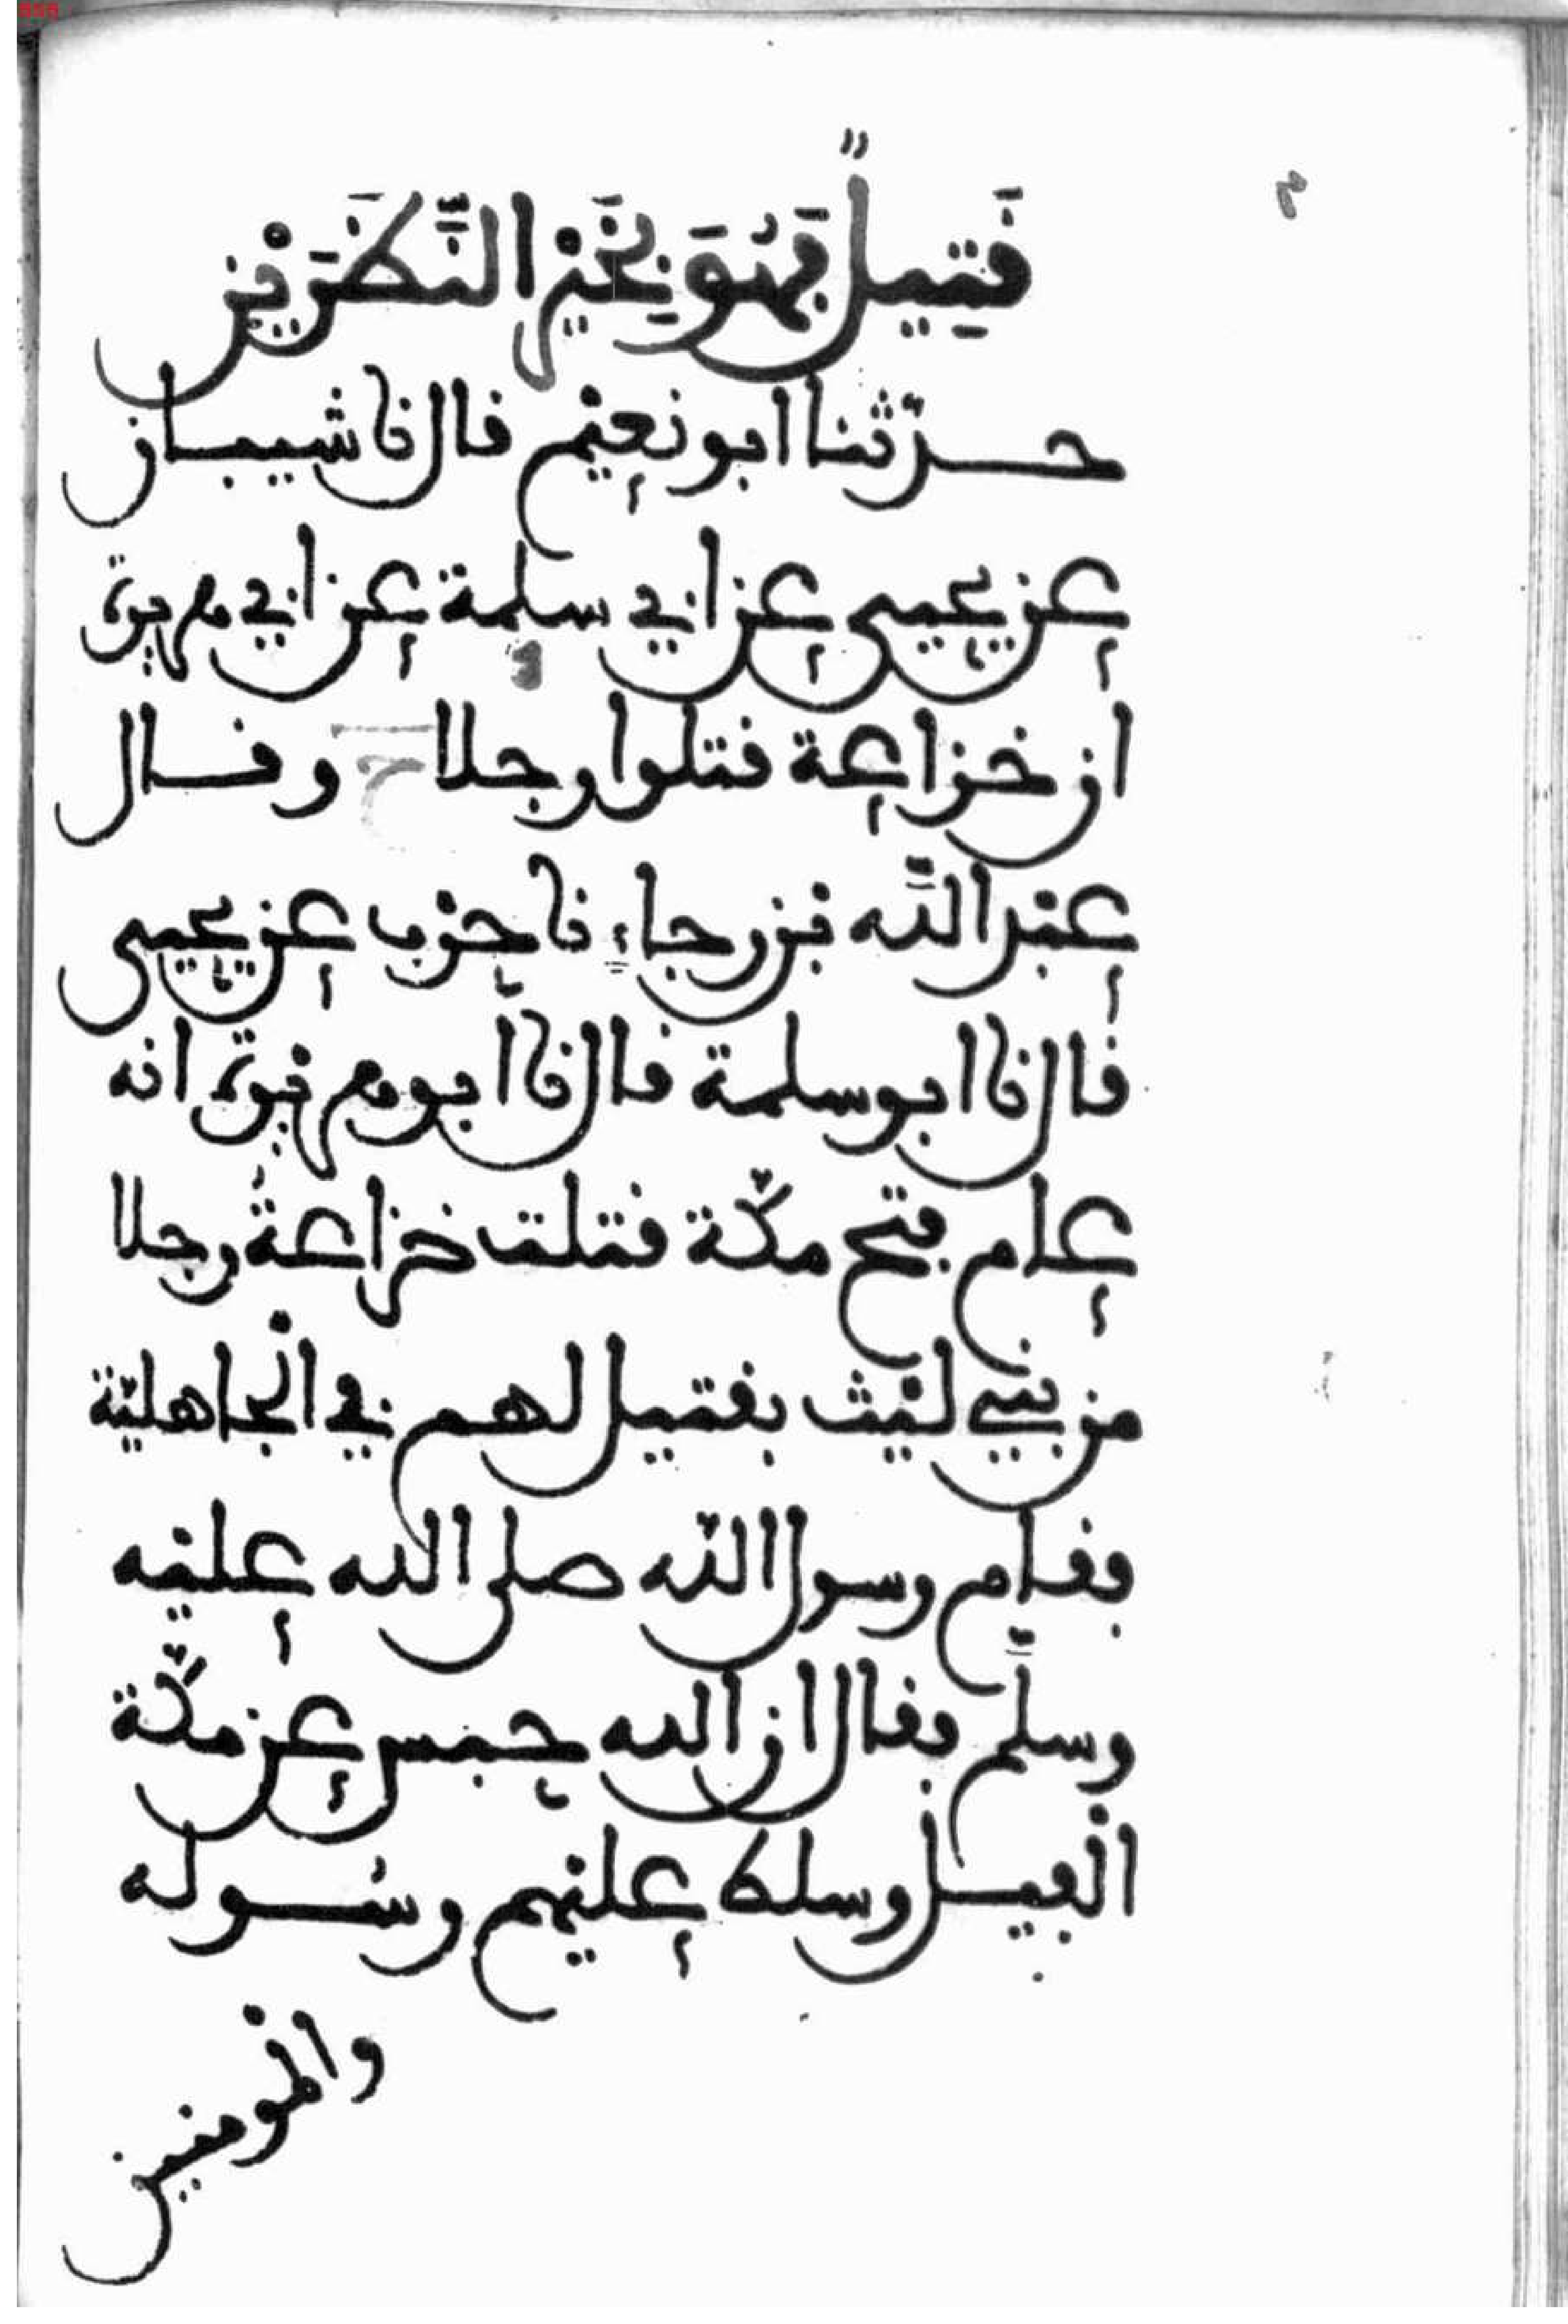 قَتِيلٌ فَهُوَ بِخَيْرِ النَّظَرَيْنِ
حدّثنا ابو نعيْم قال نا شيبان
عن يحيى عن ابي سلمة عن ابي هريرة
ان خزاعة قتلوا رجلا ح وقال
عبْد اللَّه بن رجاء نا حرْب عن يحيى
قال نا ابو سلمة قال نا أبو هريْرة انه
عام فتح مكّة قتلت خزاعةُ رجلا
من بني ليْث بقتيل لهم في الْجاهليّة
فقام رسول اللّه صلى الله عليْه
وسلَّم فقال ان الله حبس عن مكّة
الْفيل وسلط عليْهم رسُوله
والْمومنين